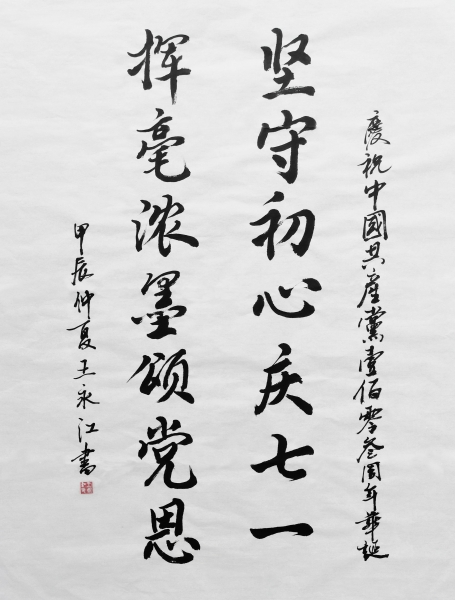 慶祝中國共產黨壹佰零叁周年華誕
坚守初心庆七一
挥毫浓墨颂党恩
甲辰仲夏王永江書